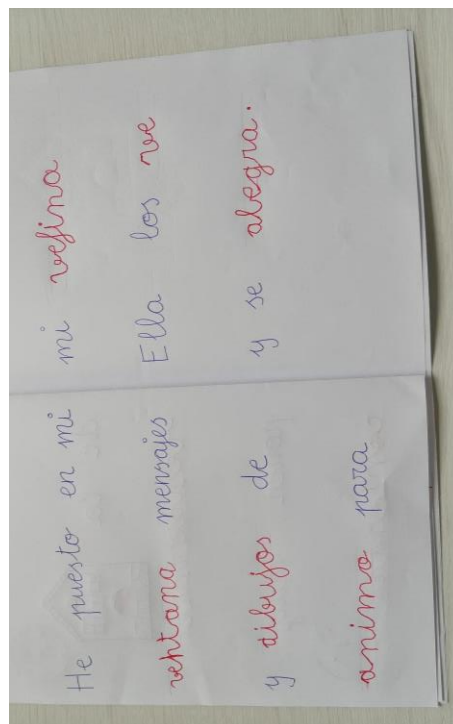 He puesto en mi
vehtana mensajes
y dibujos de
animo para
mi vefina
Ella los ve
y se alegra.